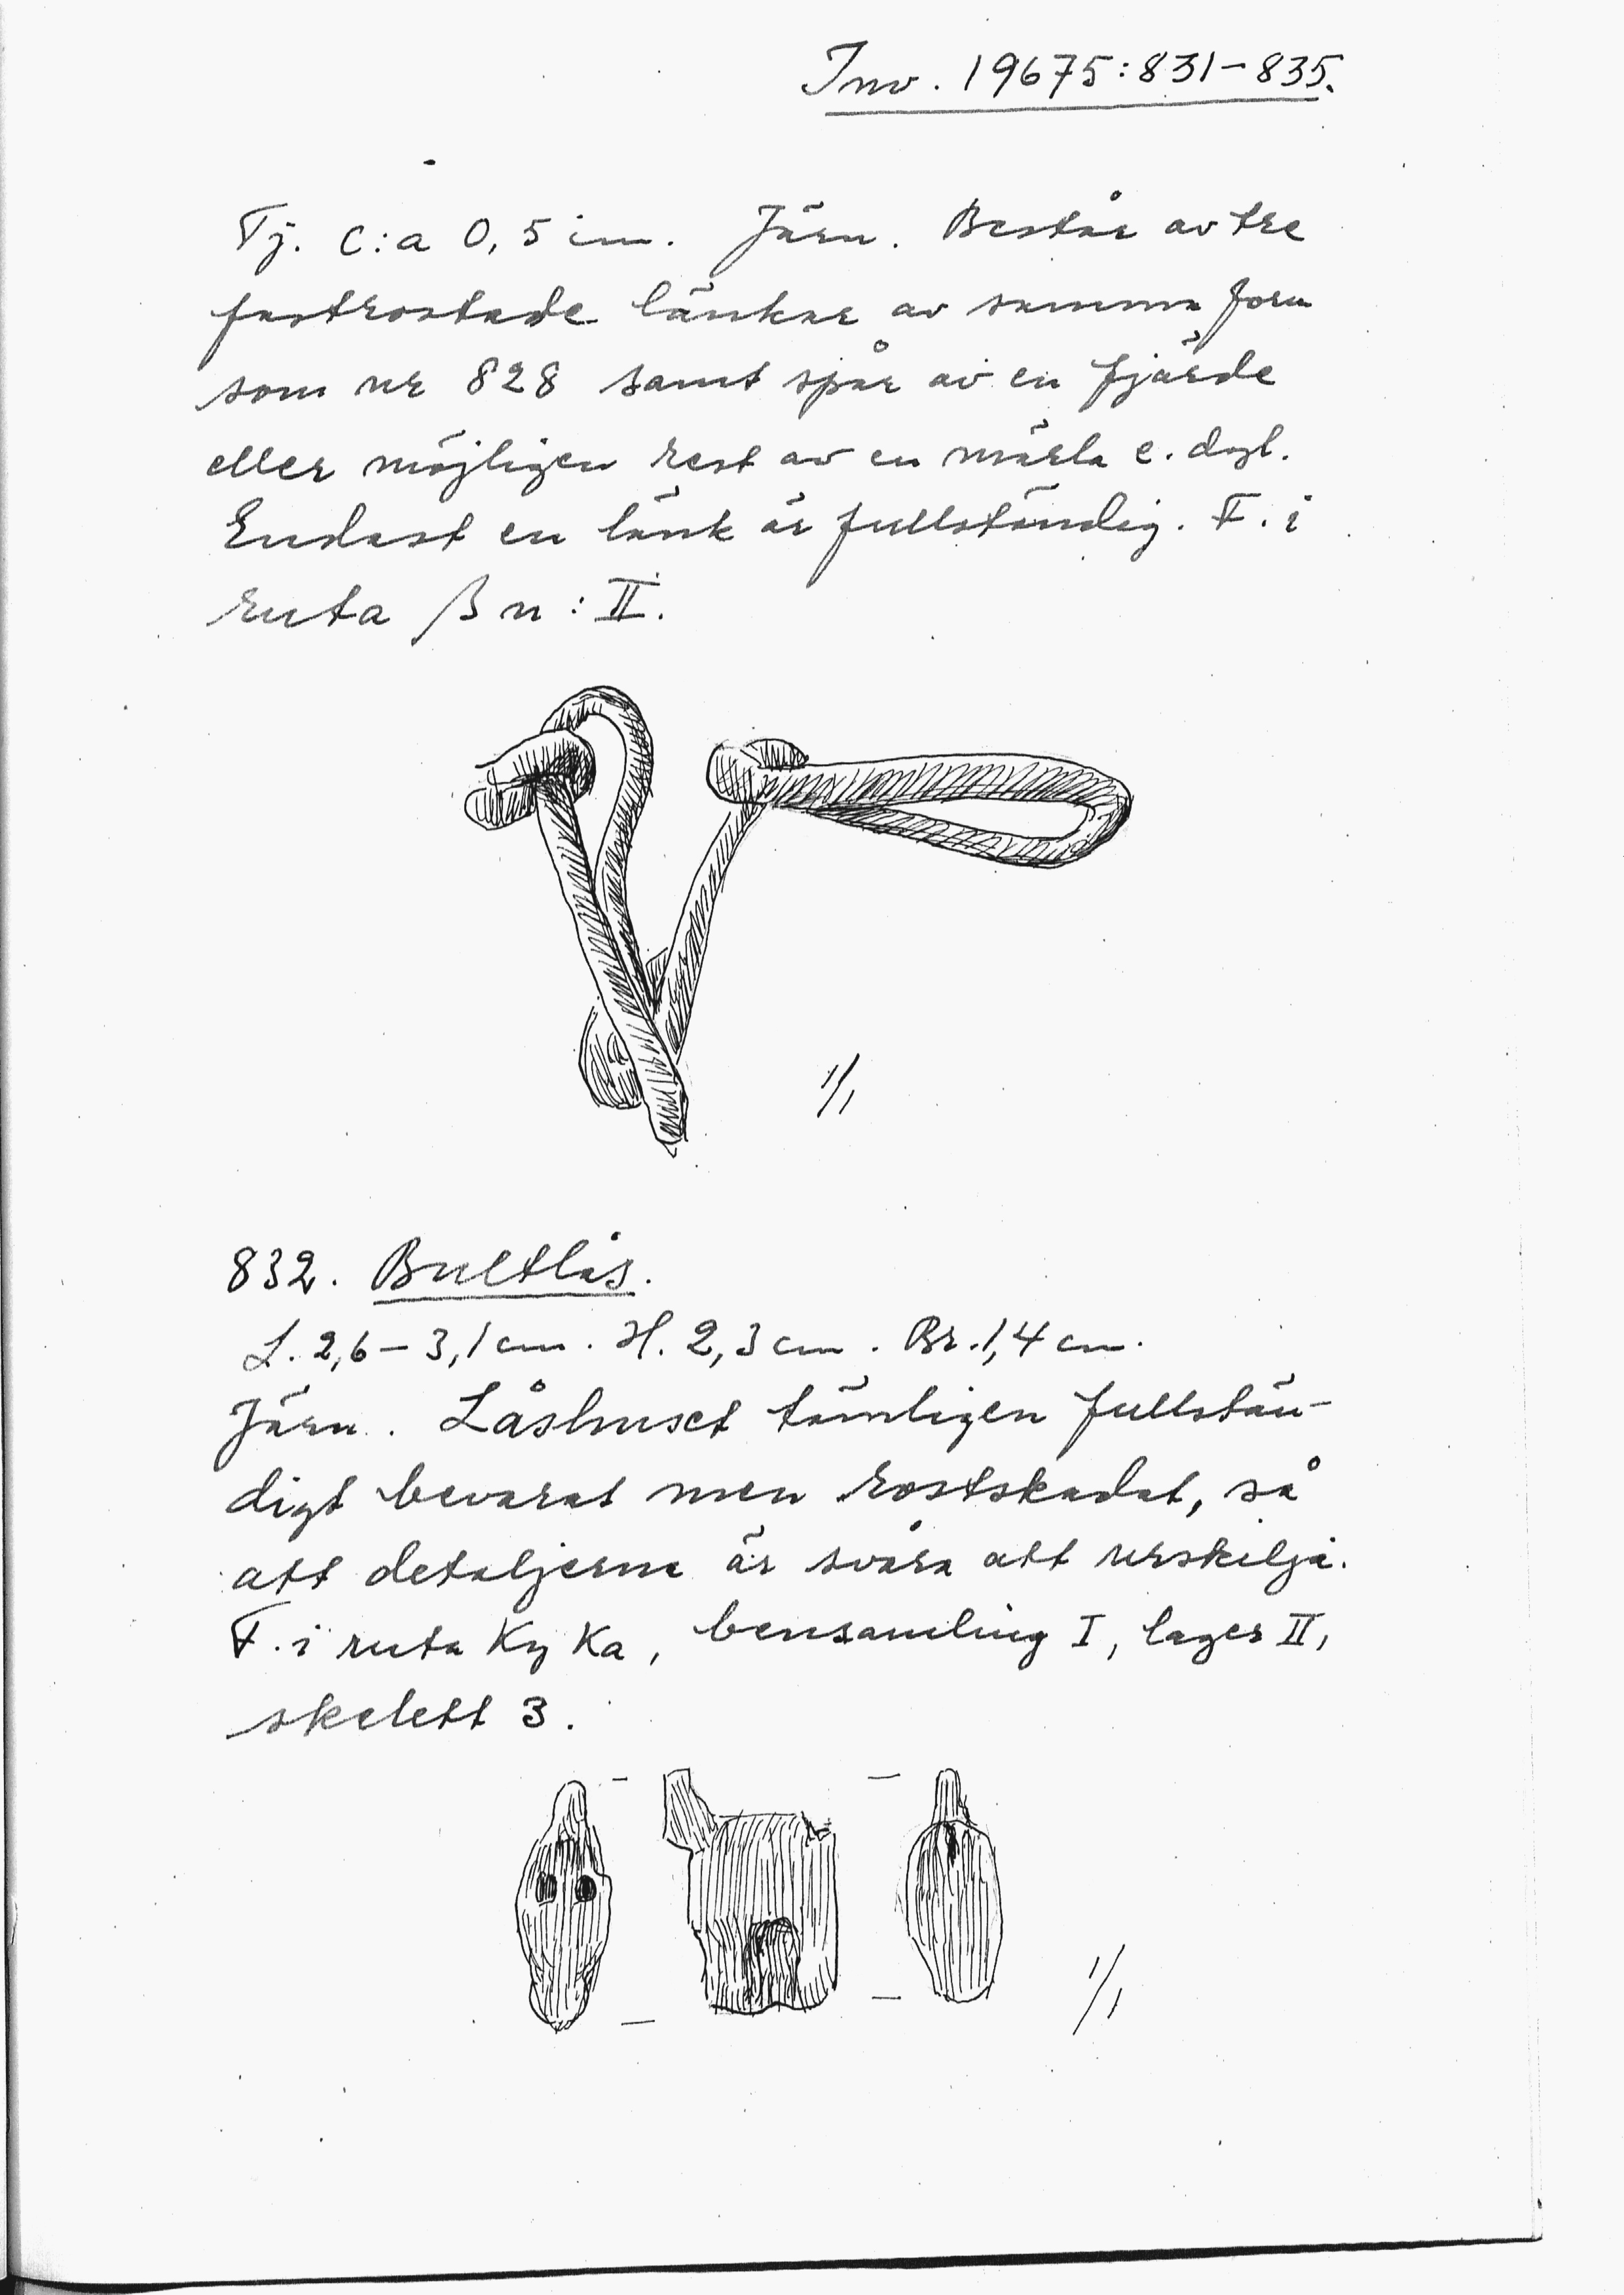 Inv. 19675:831-835.
Tj. c:a 0,5 cm. Järn. Består av tre
fastrostade länkar av samma form
som nr 828 samt spår av en fjärde
eller möjligen rest av en märla e. dyl.
Endast en länk är fullständig. F. i
ruta βn:II.
1/1
832. Bultlås.
L. 2,6-3,1 cm. H. 2,3 cm. Br. 1,4 cm.
Järn. Låshuset tämligen fullstän-
digt bevarat men rostskadat, så
att detaljerna är svåra att urskilja.
F. i ruta Ky Ka, bensamling I, lager II,
skelett 3.
1/1